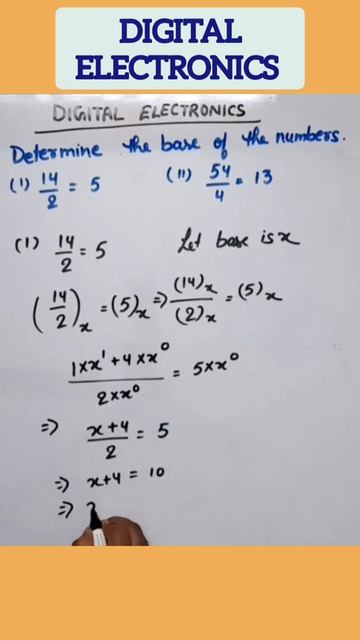 DIGITAL
ELECTRONICS
DIGITAL ELECTRONICS
Determine the base of the numbers.
(I) 14/2 = 5 (II) 54/4 = 13
(I) 14/2 = 5 Let base is x
(14/2)x = (5)x ⇒ (14)x/(2)x = (5)x
1×x¹+4×x⁰/2×x⁰ = 5×x⁰
⇒ x+4/2 = 5
⇒ x+4 = 10
⇒